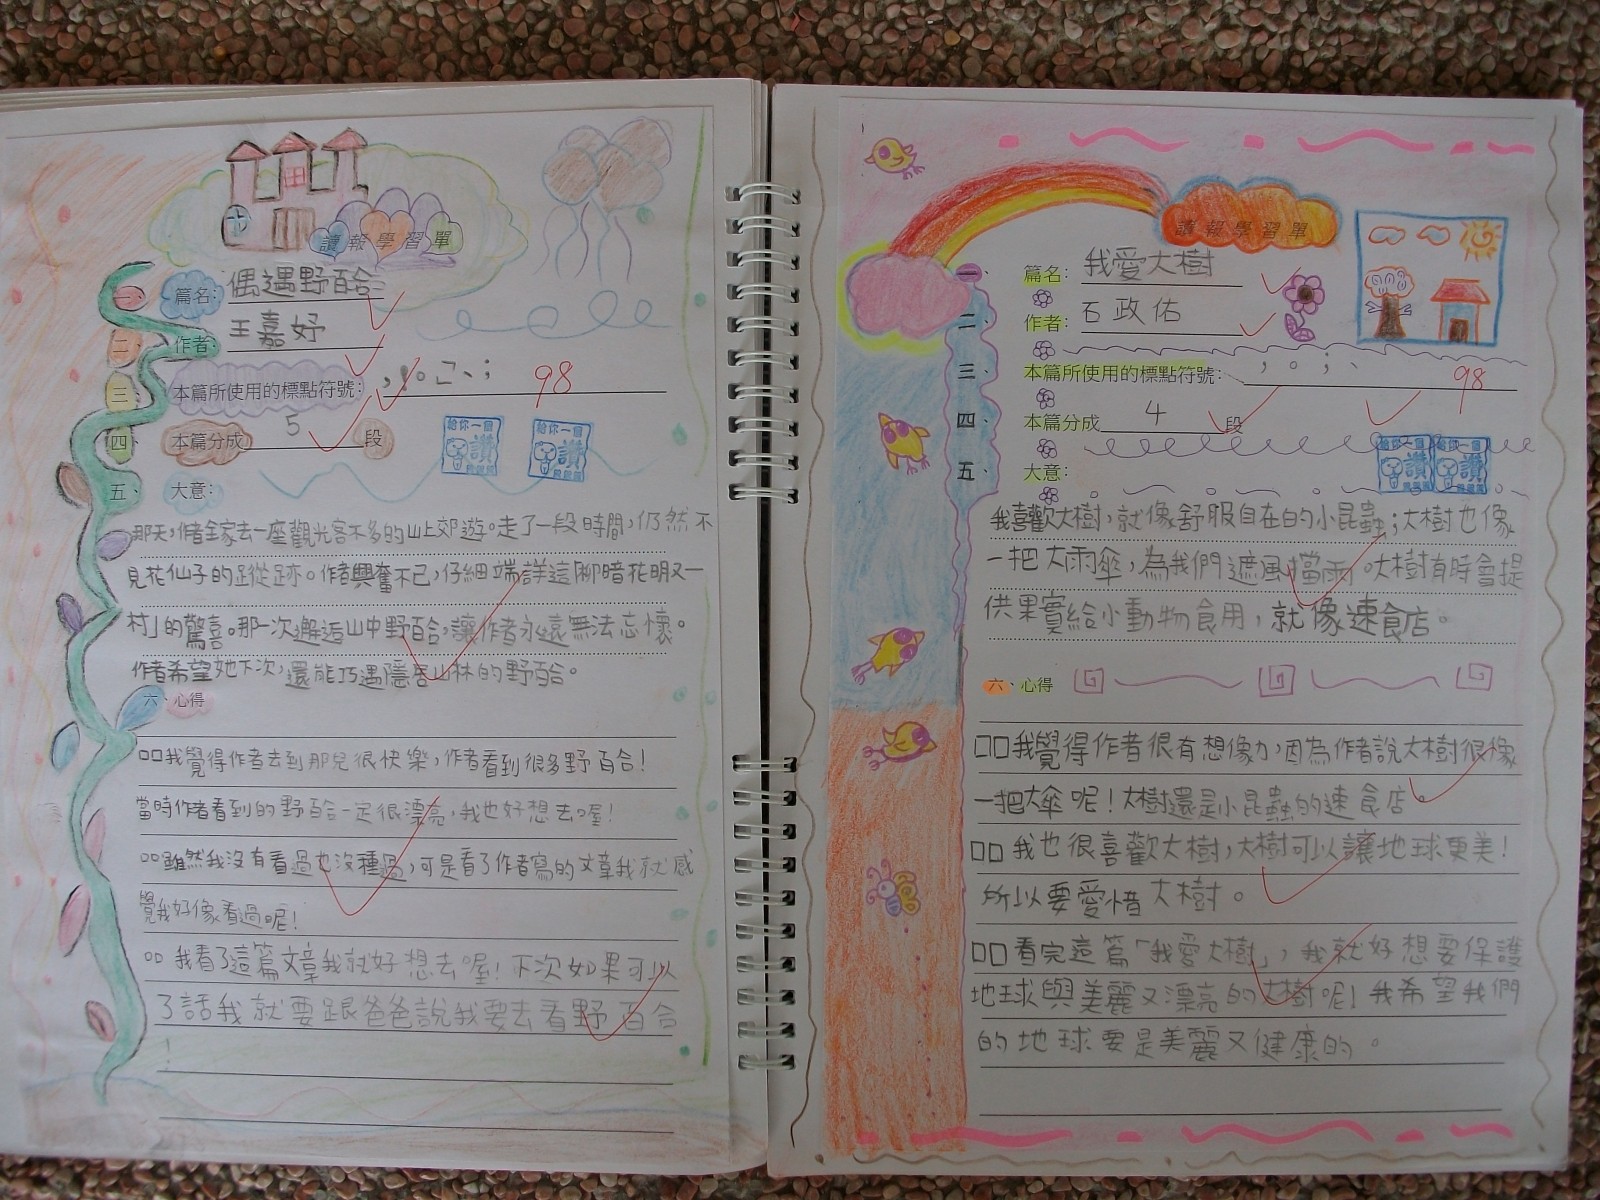 讀報學習單
篇名：偶遇野百合
二、作者：王嘉妤
三、本篇所使用的標點符號：，！。「」、；
98
四、本篇分成5段
給你一個
讚
給你一個
讚
五、大意：
那天，作者全家去一座觀光客不多的山上郊遊。走了一段時間，仍然不
見花仙子的蹤跡。作者興奮不已，仔細端詳這「柳暗花明又一
村」的驚喜。那一次邂逅山中野百合，讓作者永遠無法忘懷。
作者希望她下次，還能巧遇隱居山林的野百合。
六、心得
□□我覺得作者去到那兒很快樂，作者看到很多野百合！
當時作者看到的野百合一定很漂亮，我也好想去喔！
□□雖然我沒有看過也沒種過，可是看了作者寫的文章我就感
覺我好像看過呢！
□□我看了這篇文章我就好想去喔！下次如果可以
了話我就要跟爸爸說我要去看野百合
！
讀報學習單
一、篇名：我愛大樹
二、作者：石政佑
三、本篇所使用的標點符號：，。；、
98
四、本篇分成4段
給你一個
讚
給你一個
讚
五、大意：
我喜歡大樹，就像舒服自在的小昆蟲；大樹也像
一把大雨傘，為我們遮風擋雨。大樹有時會提
供果實給小動物食用，就像速食店。
六、心得
□□我覺得作者很有想像力，因為作者說大樹很像
一把大傘呢！大樹還是小昆蟲的速食店
□□我也很喜歡大樹，大樹可以讓地球更美！
所以要愛惜大樹。
□□看完這篇「我愛大樹」，我就好想要保護
地球與美麗又漂亮的大樹呢！我希望我們
的地球要是美麗又健康的。